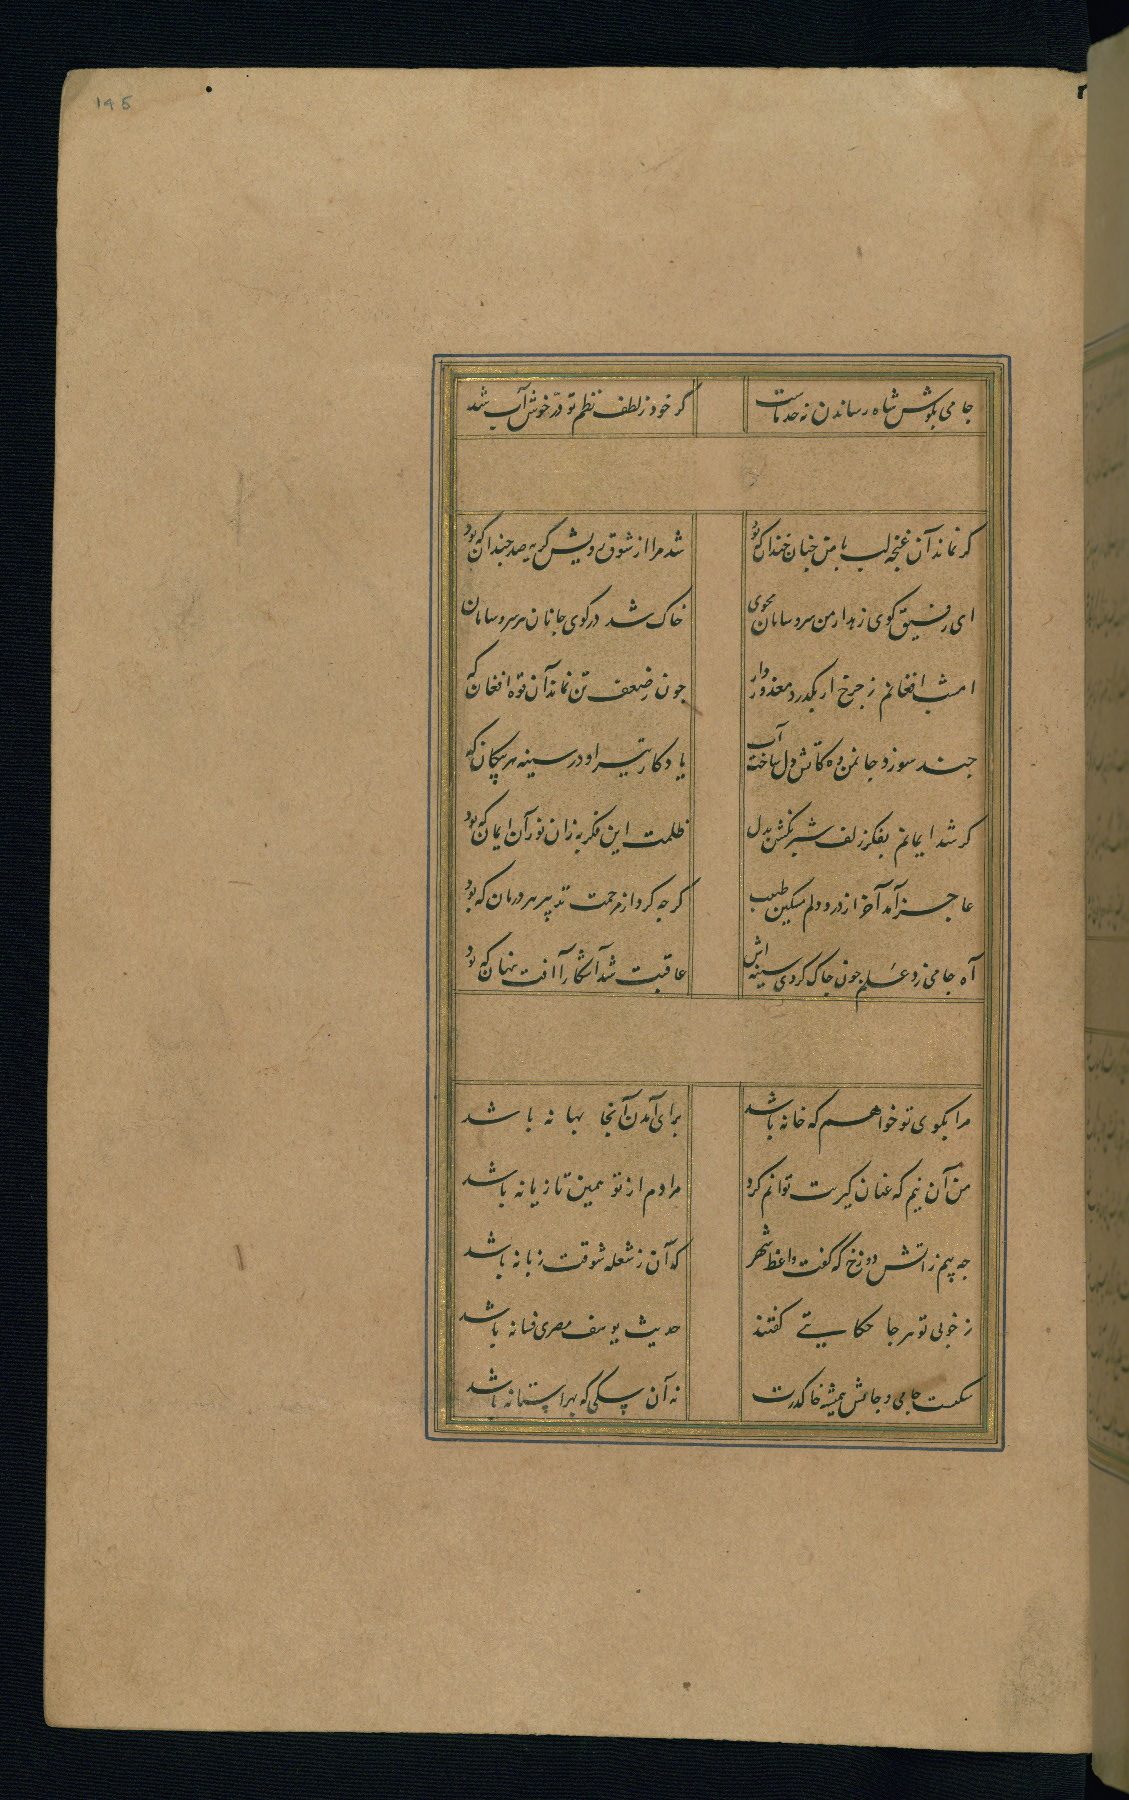 195
جامی بگوش شاه رساندن نه حد ماست گر خود ز لطف نظم تو در خوش آب شد
کر نماند آن غنچه لب با من چنان خندان که بود شد مرا از شوق رویش کریه صد چندان که بود
ای رفیق کوی زهد از من سر و سامان مجوی خاک شد در کوی جانان سر و سامان که
امشب افغانم ز چرخ ار نکذرد معذور دار چون ز ضعف تن نماند آن قوة افغان که
چند سوزد جان من وه کاتش دل ساخت آب یادکار تیر او در سینه هر پیکان که
کر شد ایمانم بفکر زلف شبرنکش بدل ظلمت این فکر به زان نور آن ایمان که بود
عاجز آمد آخر از درد دلم مسکین طبیب کرچه کرد از مرحمت تدبیر هر درمان که بود
آه جامی زد علم چون چاک کردی سینه اش عاقبت شد آشکارا آفت پنهان که بود
مرا بکوی تو خواهم که خانه باشد برای آمدن آنجا بهانه باشد
من آن نیم که عنان کیریت توانم کرد مرادم از تو همین تازیانه باشد
چه بیم ز آتش دوزخ که کفت واعظ شهر که آن ز شعله شوقت زبانه باشد
ز خوبی تو هر جا حکایتی کفتند حدیث یوسف مصری فسانه باشد
سکیست جامی و جایش همیشه خاک درت نه آن سکی که بهر آستانه باشد